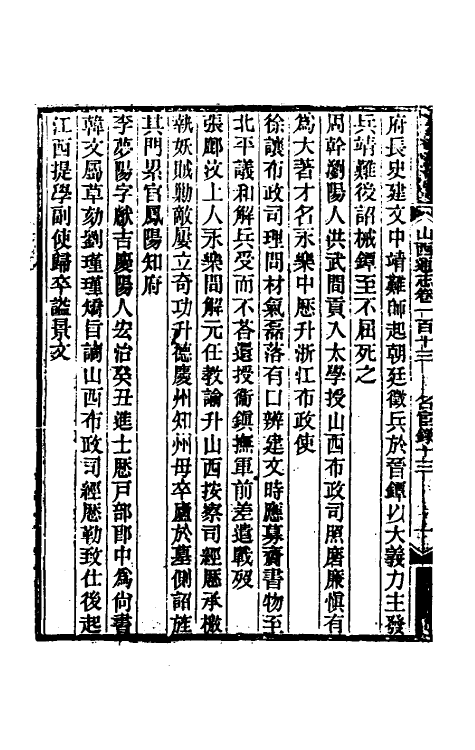 府長史建文中靖難師起朝廷徵兵於晉鐔以大義力主發
兵靖難後詔械鐔至不屈死之
周幹瀏陽人洪武間貢入太學授山西布政司照磨廉慎有
爲大著才名永樂中歷升浙江布政使
徐讓布政司理問材氣磊落有口辨建文時應募齎書物至
北平議和解兵受而不荅還授衞鎭撫軍前差遣戰歿
張郿汶上人永樂間解元任教諭升山西按察司經歷承檄
執妖賊勦敵屢立奇功升德慶州知州母卒廬於墓側詔旌
其門累官鳳陽知府
李夢陽字獻吉慶陽人宏治癸丑進士歷戸部郎中爲尚書
韓文屬草劾劉瑾瑾矯旨謫山西布政司經歷勒致仕後起
江西提學副使歸卒謚景文
山西通志卷一百十三 名宦錄十三